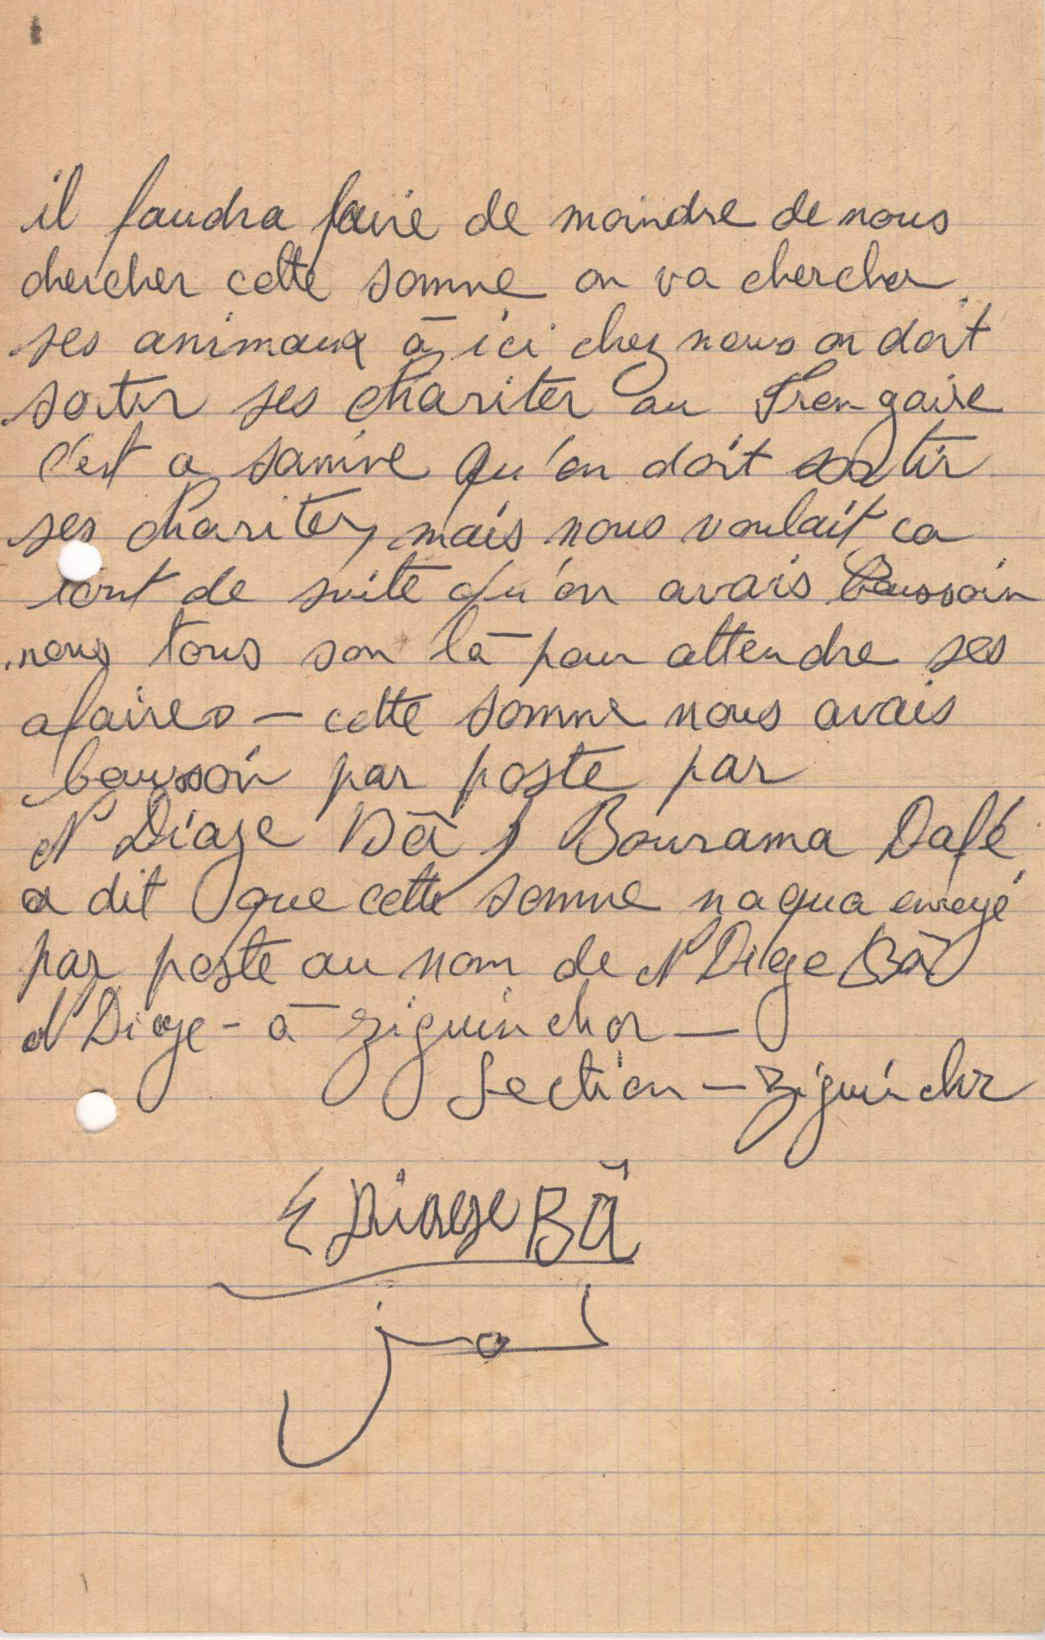 il faudra faire de moindre de nous
chercher cette somme on va chercher
ses animaux à ici chez nous on doit
sortir ses chariter au
c'est a samive qu'on doit sortir
ses chariter, mais nous voulait ca
tout de suite qu'on avais baussoin
nous tous son là pour attendre ses
afaires – cette somme nous avais
bausoin par poste par
N'Diaye Bâ, Bourama Dafé
a dit que cette somme naqua envoyé
par poste au nom de N'Diaye Bâ
N'Diaye – à Ziguinchor –
Section – Ziguinchor
Diaye Bâ